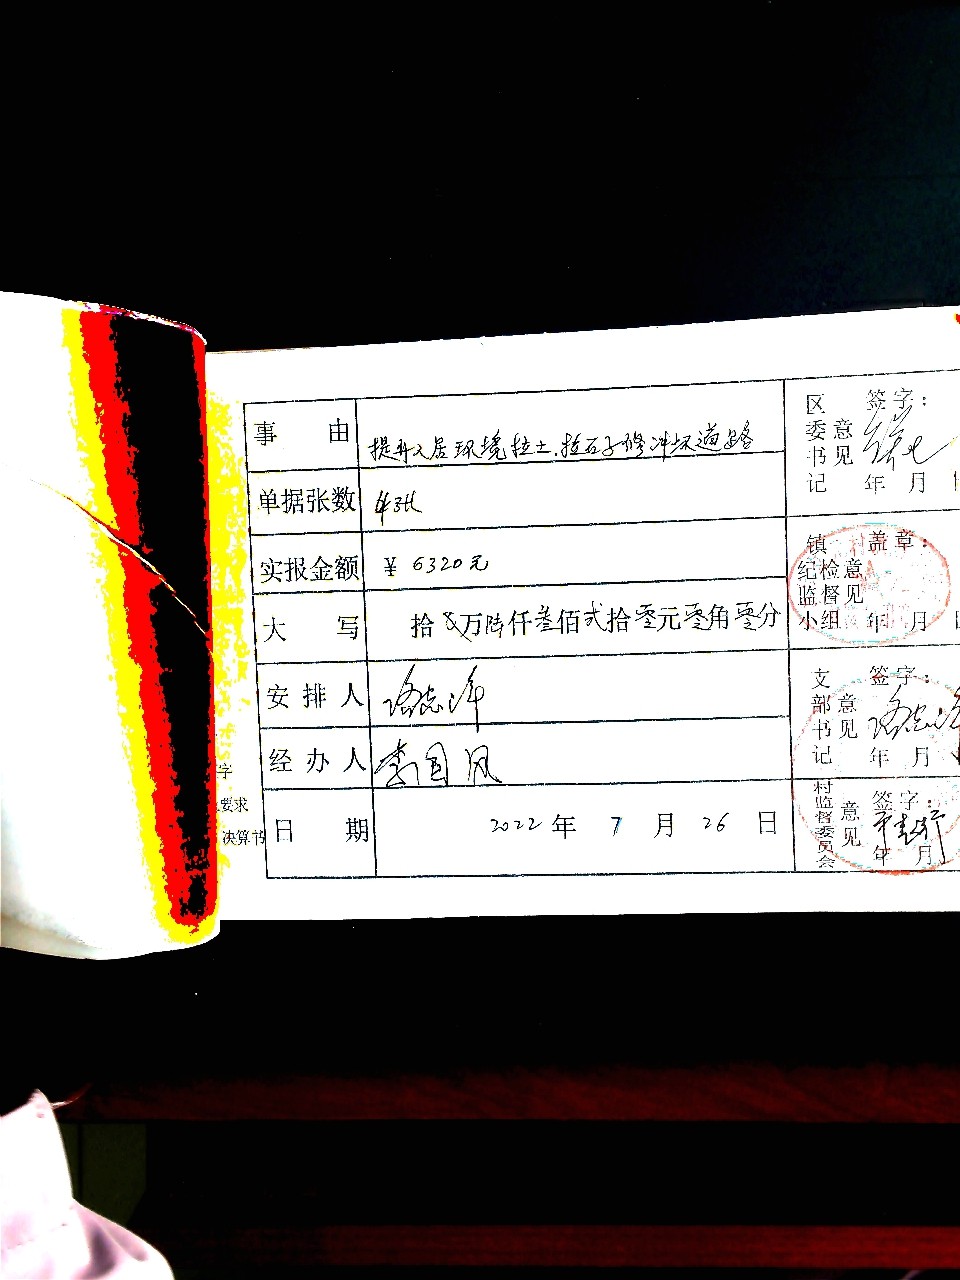 事 由 提升人居环境拉土.拉石子修冲坏道路
单据张数 4张
实报金额 ¥ 6320元
大 写 拾 万陆仟叁佰弍拾零元零角零分
安排人
经办人 李国凤
日 期 2022年 7 月 26 日
区委书记意见 签字:
年 月
镇纪检监督小组意见 盖章:
年 月 日
支部书记意见 签字:
年 月
村监督委员会意见 签字:
年 月
字
要求
决算书